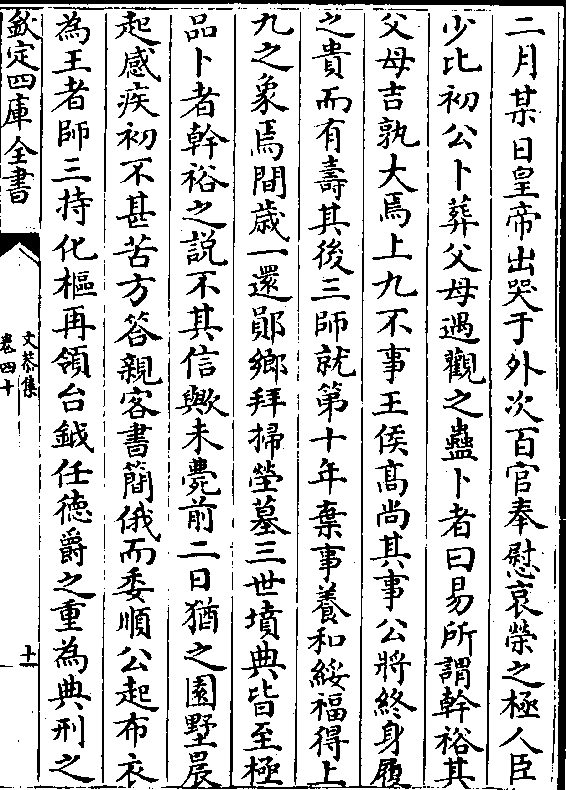 二月某日皇帝出哭于外次百官奉慰哀榮之極人臣
少比初公卜葬父母遇觀之蠱卜者曰易所謂幹裕其
父母吉孰大焉上九不事王侯髙尚其事公將終身履
之貴而有壽其後三師就第十年棄事養和綏福得上
九之象焉間歳一還鄖鄉拜掃塋墓三世墳典皆至極
品卜者幹裕之説不其信歟未薨前二日猶之園墅晨
起感疾初不甚苦方答親客書簡俄而委順公起布衣
為王者師三持化樞再領台鉞任徳爵之重為典刑之
欽定四庫全書
文恭集
卷四十
十一